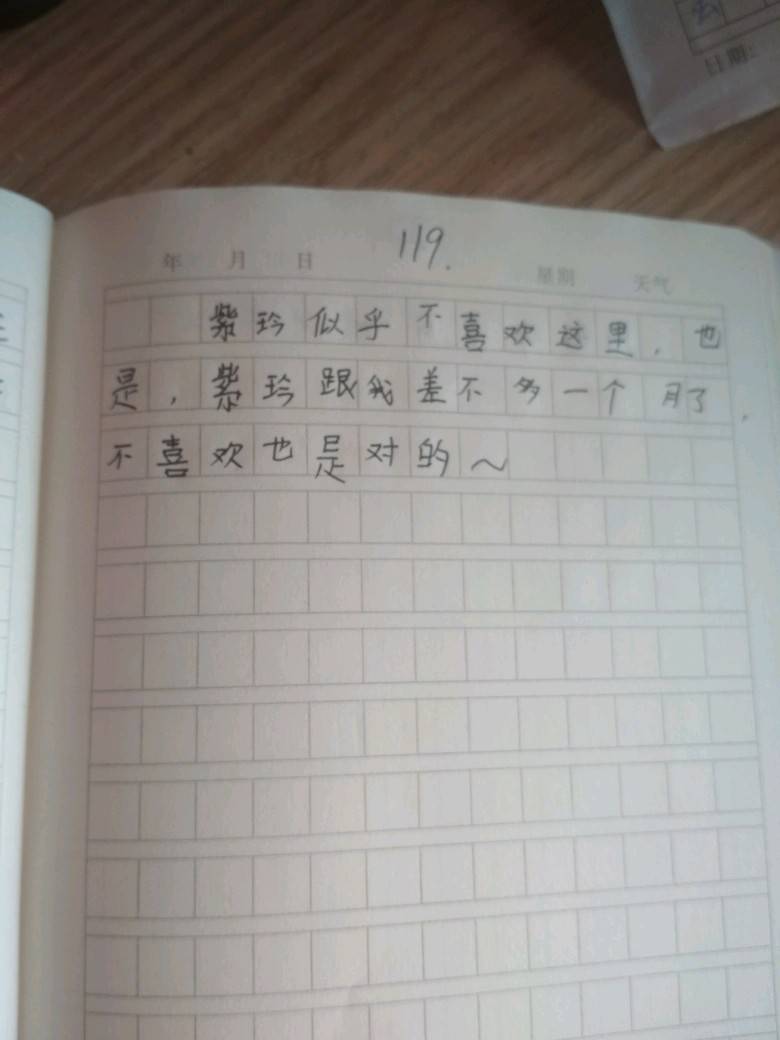 去
日期:
119.
年 月 日 星期 天气
紫玲似乎不喜欢这里，也
是，紫玲跟我差不多一个月了，
不喜欢也是对的～